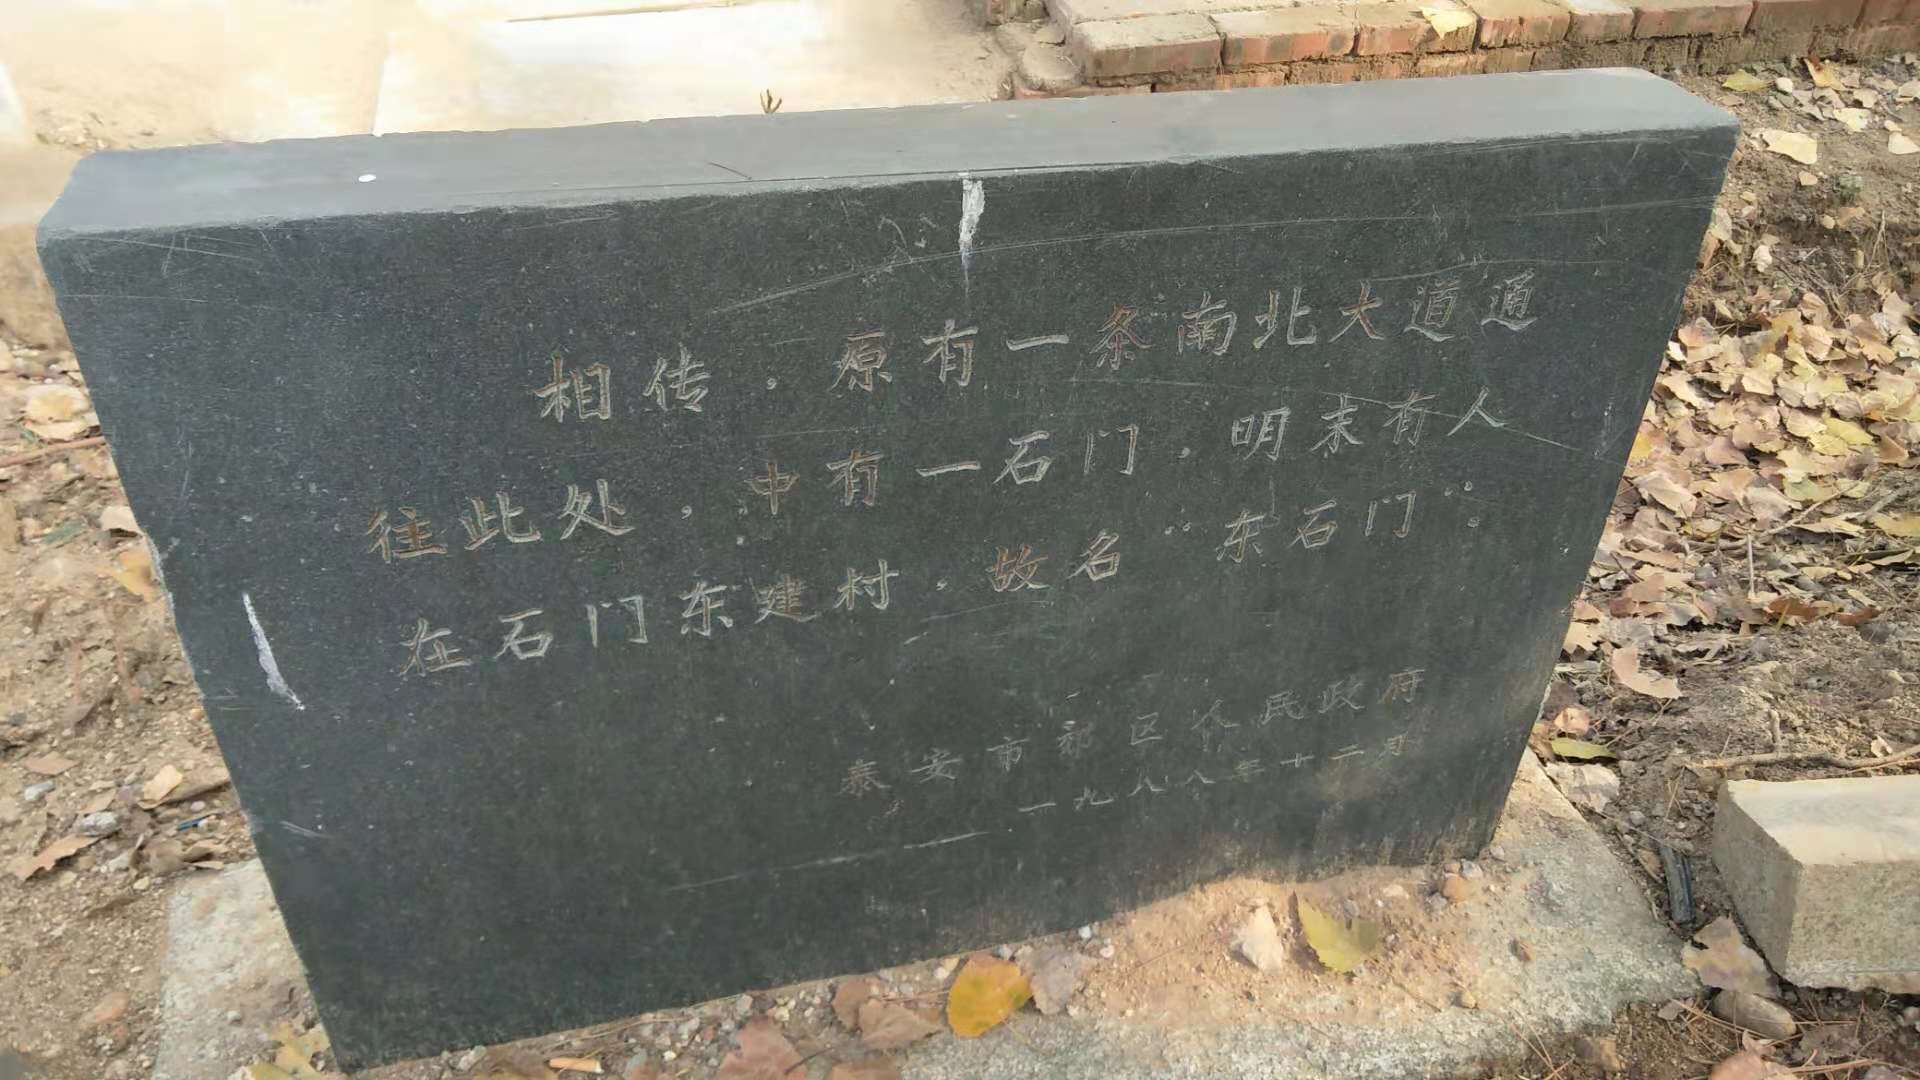 相传，原有一条南北大道通
往此处，中有一石门，明末有人
在石门东建村，故名“东石门”。
泰安市郊区人民政府
一九八八年十二月